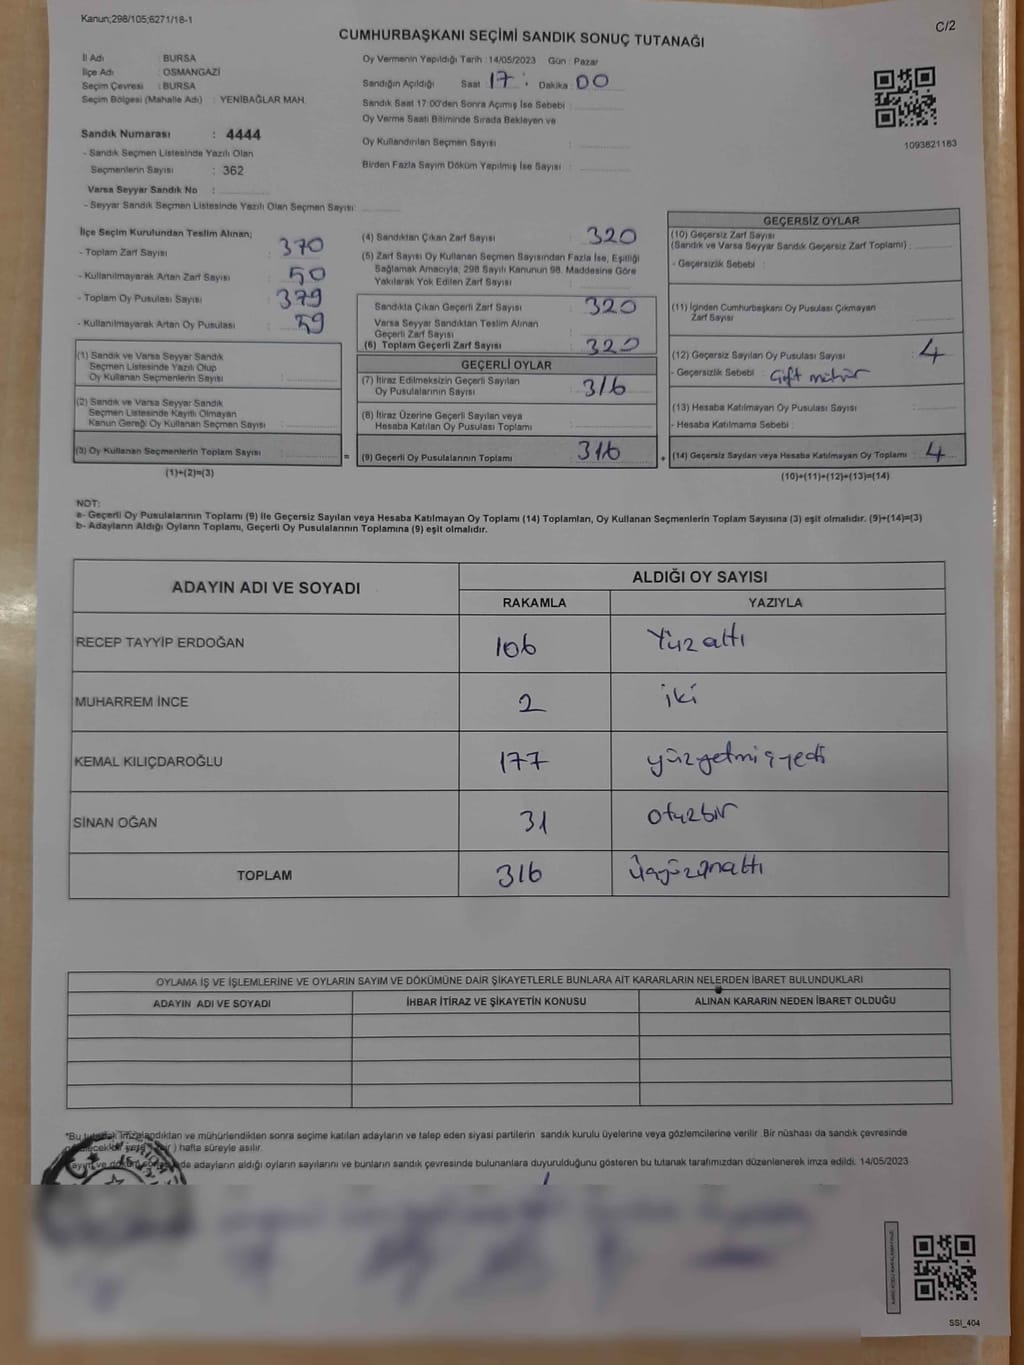 Kanun;298/105;6271/18-1
C/2
CUMHURBAŞKANI SEÇİMİ SANDIK SONUÇ TUTANAĞI
İl Adı : BURSA
İlçe Adı : OSMANGAZİ
Seçim Çevresi : BURSA
Seçim Bölgesi (Mahalle Adı) : YENİBAĞLAR MAH.
Sandık Numarası : 4444
- Sandık Seçmen Listesinde Yazılı Olan
Seçmenlerin Sayısı : 362
Varsa Seyyar Sandık No :
- Seyyar Sandık Seçmen Listesinde Yazılı Olan Seçmen Sayısı:
Oy Vermenin Yapıldığı Tarih : 14/05/2023 Gün : Pazar
Sandığın Açıldığı Saat : 17 Dakika : 00
Sandık Saat 17:00'den Sonra Açımış İse Sebebi :
Oy Verme Saati Bitiminde Sırada Bekleyen ve
Oy Kullandırılan Seçmen Sayısı :
Birden Fazla Sayım Döküm Yapılmış İse Sayısı :
1093821163
İlçe Seçim Kurulundan Teslim Alınan;
- Toplam Zarf Sayısı : 370
- Kullanılmayarak Artan Zarf Sayısı : 50
- Toplam Oy Pusulası Sayısı : 379
- Kullanılmayarak Artan Oy Pusulası : 59
(1) Sandık ve Varsa Seyyar Sandık
Seçmen Listesinde Yazılı Olup
Oy Kullanan Seçmenlerin Sayısı :
(2) Sandık ve Varsa Seyyar Sandık
Seçmen Listesinde Kayıtlı Olmayan
Kanun Gereği Oy Kullanan Seçmen Sayısı :
(3) Oy Kullanan Seçmenlerin Toplam Sayısı :
(1)+(2)=(3)
=
(4) Sandıktan Çıkan Zarf Sayısı : 320
(5) Zarf Sayısı Oy Kullanan Seçmen Sayısından Fazla İse, Eşitliği
Sağlamak Amacıyla; 298 Sayılı Kanunun 98. Maddesine Göre
Yakılarak Yok Edilen Zarf Sayısı :
Sandıkta Çıkan Geçerli Zarf Sayısı : 320
Varsa Seyyar Sandıktan Teslim Alınan
Geçerli Zarf Sayısı :
(6) Toplam Geçerli Zarf Sayısı : 320
GEÇERLİ OYLAR
(7) İtiraz Edilmeksizin Geçerli Sayılan
Oy Pusulalarının Sayısı : 316
(8) İtiraz Üzerine Geçerli Sayılan veya
Hesaba Katılan Oy Pusulası Toplamı :
(9) Geçerli Oy Pusulalarının Toplamı : 316
+
GEÇERSİZ OYLAR
(10) Geçersiz Zarf Sayısı
(Sandık ve Varsa Seyyar Sandık Geçersiz Zarf Toplamı) :
- Geçersizlik Sebebi :
(11) İçinden Cumhurbaşkanı Oy Pusulası Çıkmayan
Zarf Sayısı :
(12) Geçersiz Sayılan Oy Pusulası Sayısı : 4
- Geçersizlik Sebebi : Çift mühür
(13) Hesaba Katılmayan Oy Pusulası Sayısı :
- Hesaba Katılmama Sebebi :
(14) Geçersiz Sayılan veya Hesaba Katılmayan Oy Toplamı : 4
(10)+(11)+(12)+(13)=(14)
NOT:
a- Geçerli Oy Pusulalarının Toplamı (9) ile Geçersiz Sayılan veya Hesaba Katılmayan Oy Toplamı (14) Toplamları, Oy Kullanan Seçmenlerin Toplam Sayısına (3) eşit olmalıdır. (9)+(14)=(3)
b- Adayların Aldığı Oyların Toplamı, Geçerli Oy Pusulalarının Toplamına (9) eşit olmalıdır.
ADAYIN ADI VE SOYADI
ALDIĞI OY SAYISI
RAKAMLA YAZIYLA
RECEP TAYYİP ERDOĞAN 106 Yüzaltı
MUHARREM İNCE 2 iki
KEMAL KILIÇDAROĞLU 177 yüzyetmişyedi
SİNAN OĞAN 31 otuzbir
TOPLAM 316 Üçyüzonaltı
OYLAMA İŞ VE İŞLEMLERİNE VE OYLARIN SAYIM VE DÖKÜMÜNE DAİR ŞİKAYETLERLE BUNLARA AİT KARARLARIN NELERDEN İBARET BULUNDUKLARI
ADAYIN ADI VE SOYADI İHBAR İTİRAZ VE ŞİKAYETİN KONUSU ALINAN KARARIN NEDEN İBARET OLDUĞU
*Bu tutanak imzalandıktan ve mühürlendikten sonra seçime katılan adayların ve talep eden siyasi partilerin sandık kurulu üyelerine veya gözlemcilerine verilir. Bir nüshası da sandık çevresinde
hafta süreyle asılır.
adayların aldığı oyların sayılarını ve bunların sandık çevresinde bulunanlara duyurulduğunu gösteren bu tutanak tarafımızdan düzenlenerek imza edildi. 14/05/2023
SSI_404